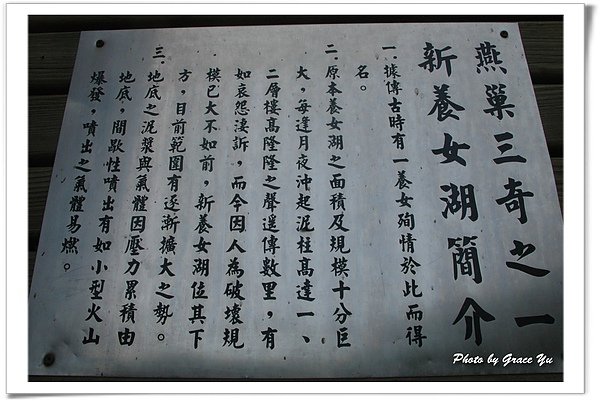 燕巢三奇之一
新養女湖簡介
一.據傳古時有一養女殉情於此而得
名。
二.原本養女湖之面積及規模十分巨
大,每逢月夜沖起泥柱高達一、
二層樓高隆隆之聲遥傳數里,有
如哀怨淒訴,而今因人為破壞規
模已大不如前,新養女湖位其下
方,目前範圍有逐漸擴大之勢。
三.地底之泥漿與氣體因壓力累積由
地底,間歇性噴出有如小型火山
爆發,噴出之氣體易燃。
Photo by Grace Yu